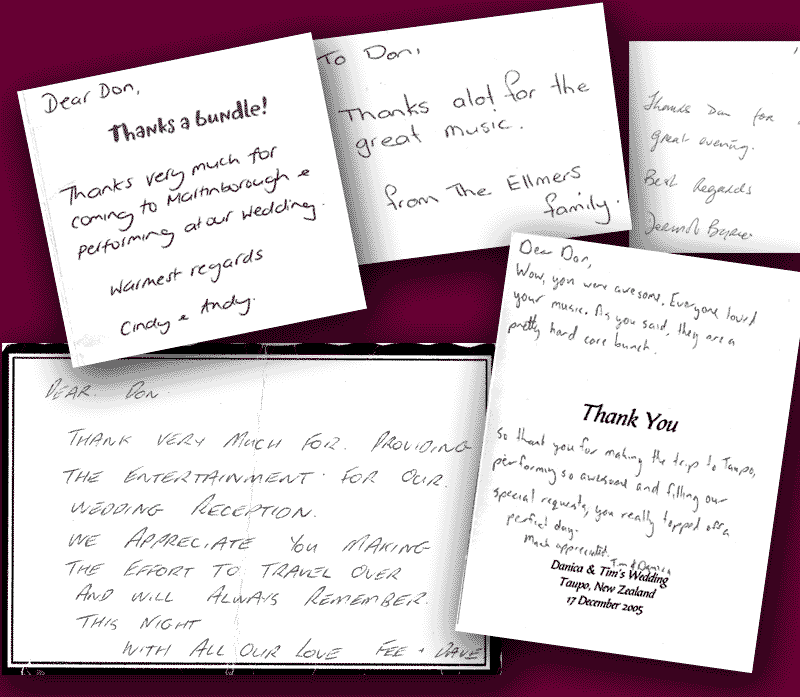 Dear Don,
Thanks a bundle!
Thanks very much for
coming to Martinborough &
performing at our wedding.
Warmest regards
Cindy & Andy.
To Don,
Thanks alot for the
great music.
from The Ellmers
family.
Thanks Don for
great evening.
Best Regards
Dear Don,
Wow, you were awesome. Everyone loved
your music. As you said, they are a
pretty hard core bunch.
Thank You
So thank you for making the trip to Taupo,
performing so awesome and filling our
special requests, you really topped off a
perfect day.
Much appreciated. Tim & Danica
Danica & Tim's Wedding
Taupo, New Zealand
17 December 2005
DEAR DON
THANK VERY MUCH FOR. PROVIDING
THE ENTERTAINMENT FOR OUR.
WEDDING RECEPTION.
WE APPRECIATE YOU MAKING
THE EFFORT TO TRAVEL OVER
AND WILL ALWAYS REMEMBER.
THIS NIGHT
WITH ALL OUR LOVE FEE + DAVE